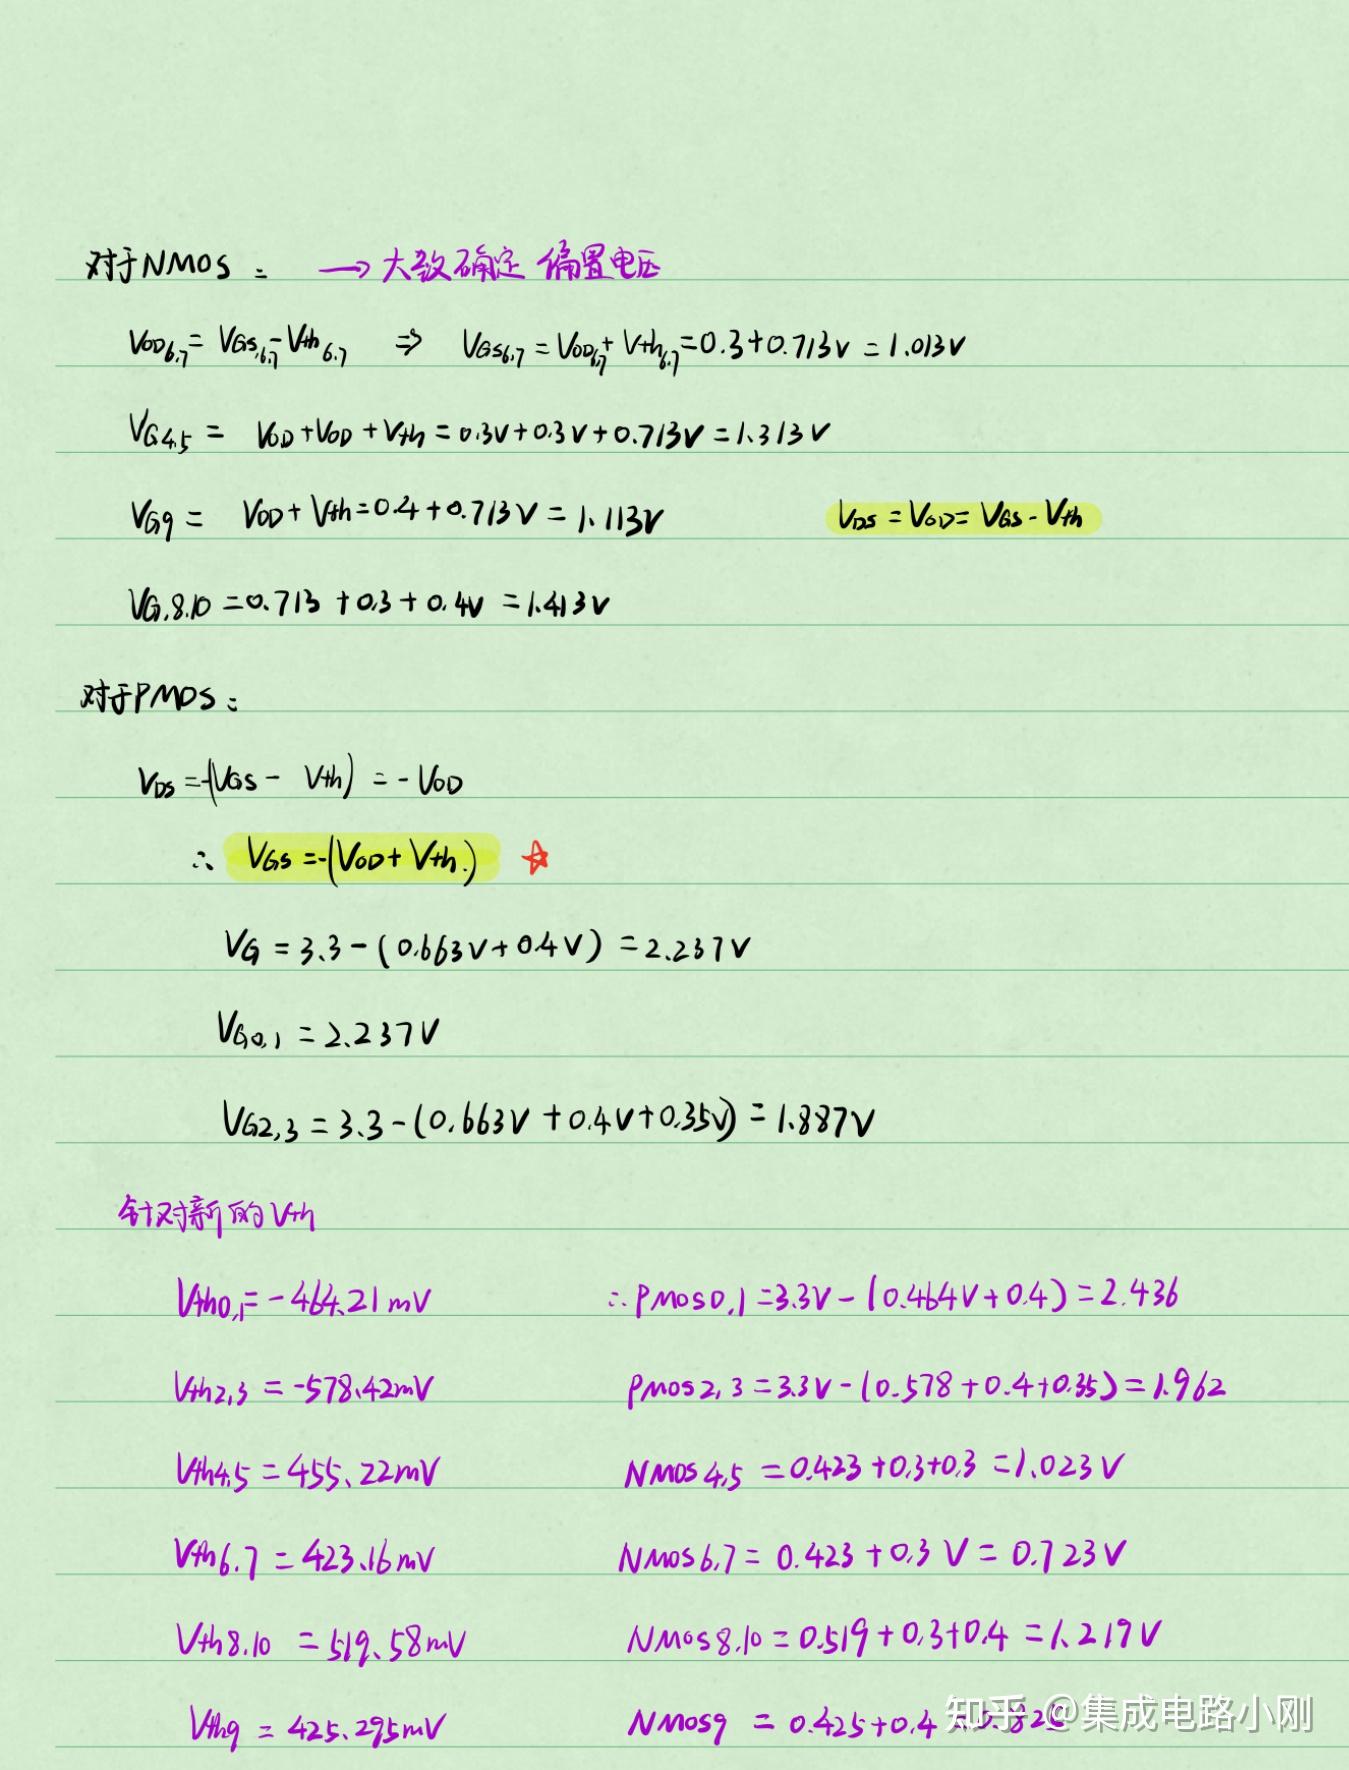 对于NMOS: → 大致确定 偏置电压
VOD6,7 = VGS,6,7 - Vth6,7 ⇒ VGS6,7 = VOD6,7 + Vth6,7 = 0.3+0.713V = 1.013V
VG4,5 = VOD + VOD + Vth = 0.3V+0.3V+0.713V = 1.313V
VG9 = VOD + Vth = 0.4+0.713V = 1.113V VDS = VOD = VGS - Vth
VG,8.10 = 0.713 + 0.3 + 0.4V = 1.413V
对于PMOS:
VDS = -(VGS - Vth) = - VOD
∴ VGS = -(VOD + Vth.) ☆
VG = 3.3 - (0.663V + 0.4V) = 2.237V
VG0,1 = 2.237V
VG2,3 = 3.3 - (0.663V + 0.4V + 0.35V) = 1.887V
针对新的Vth
Vth0,1 = -464.21mV ∴ PMOS0,1 = 3.3V - (0.464V + 0.4) = 2.436
Vth2,3 = -578.42mV PMOS2,3 = 3.3V - (0.578 + 0.4 + 0.35) = 1.962
Vth4.5 = 455.22mV NMOS4,5 = 0.423 + 0.3 + 0.3 = 1.023V
Vth6.7 = 423.16mV NMOS6,7 = 0.423 + 0.3V = 0.723V
Vth8.10 = 519.58mV NMOS8,10 = 0.519 + 0.3 + 0.4 = 1.219V
Vth9 = 425.295mV NMOS9 = 0.425 + 0.4 = 0.825
知乎 @集成电路小刚